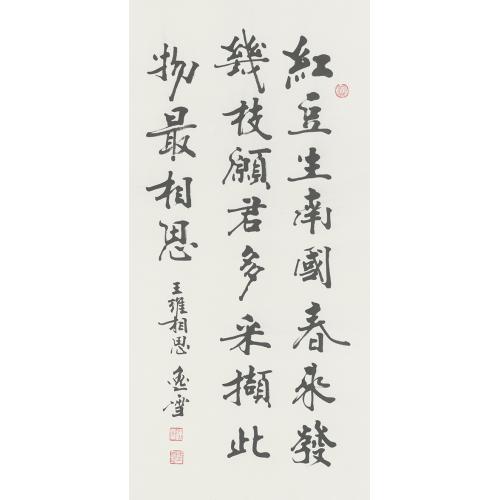 紅豆生南國春來發
幾枝願君多采擷此
物最相思
王維相思 逸雪